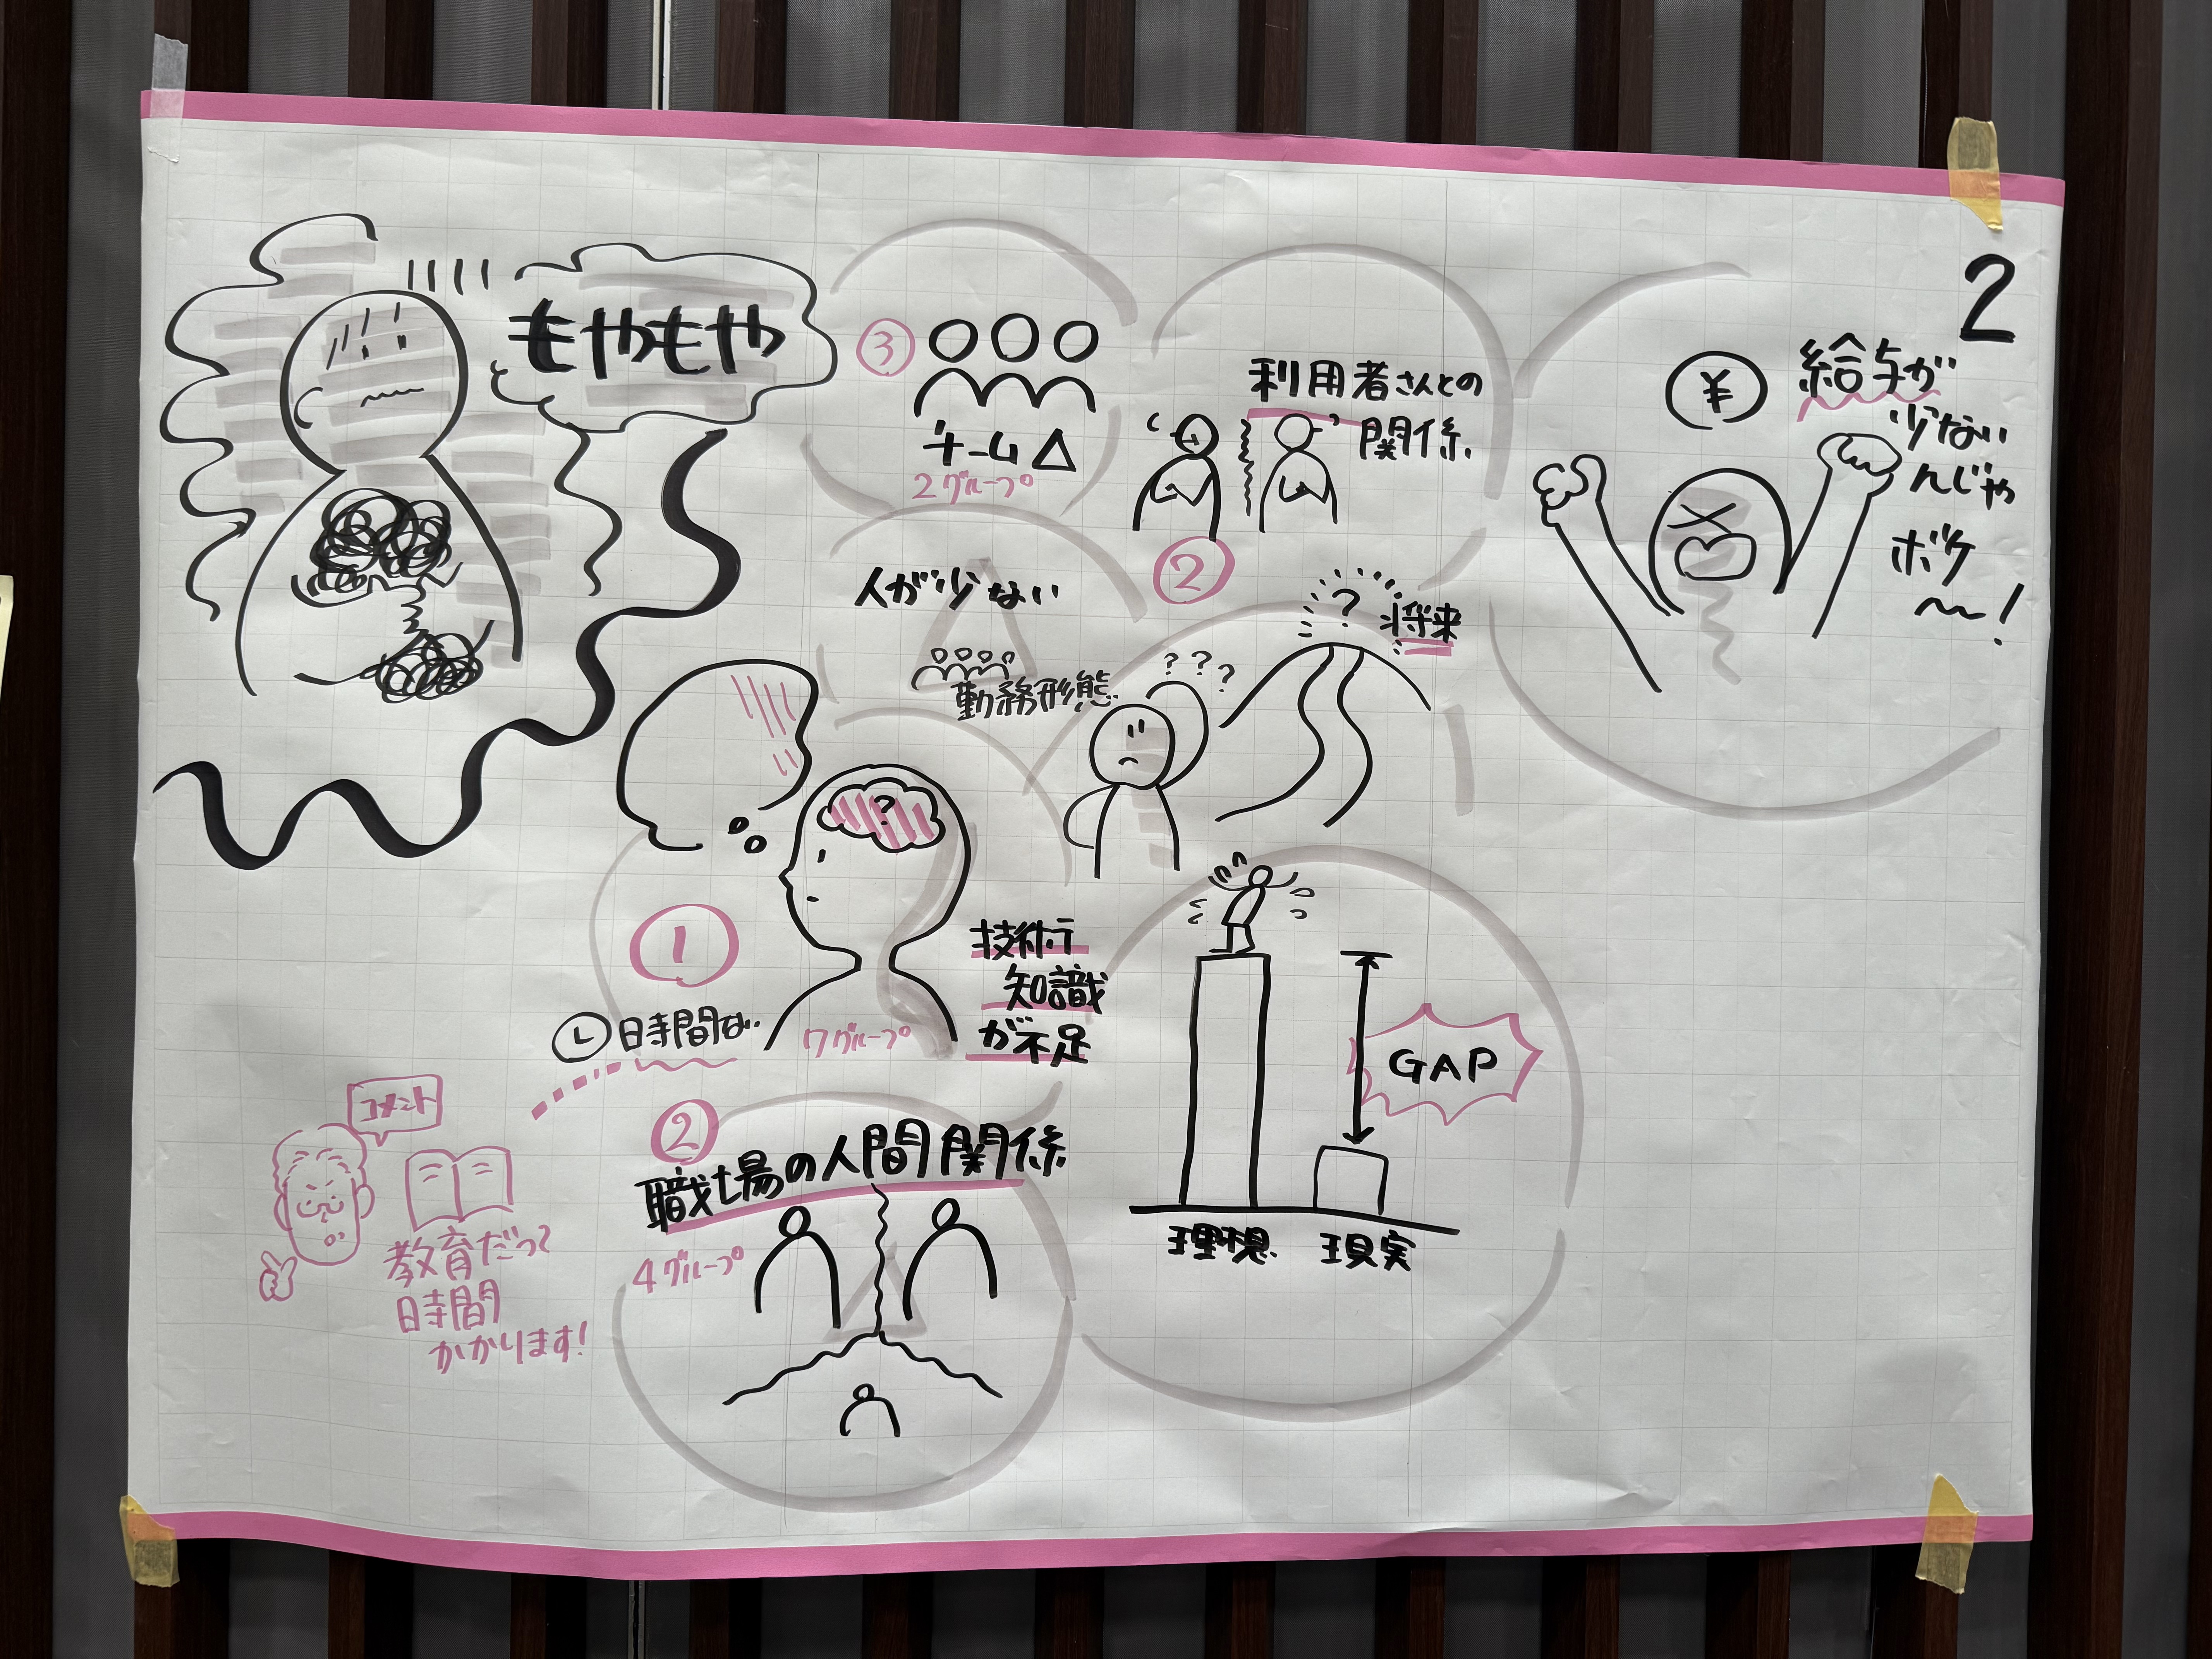 2
もやもや
③
チーム△
2グループ
利用者さんとの
関係
②
¥
給与が
少ない
んじゃ
ボケ
〜!
人が少ない
勤務形態
? ? ?
?
将来
?
①
技術
知識
が不足
7グループ
時間ない
コメント
教育だって
時間
かかります!
②
職場の人間関係
4グループ
GAP
理想
現実